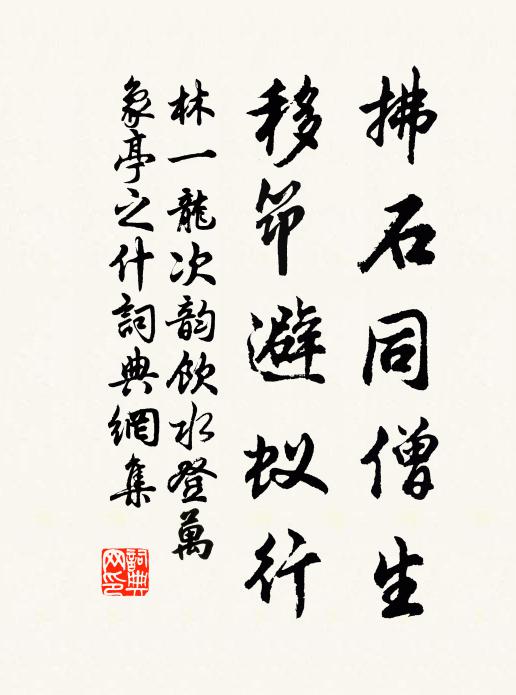 拂石同僧生
移筇避蚁行
林一龍次韵飲水登萬
象亭之什詞典網集
詞典
网印